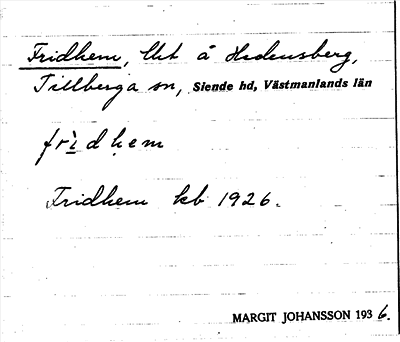 Fridhem, lht å Hedensberg,
Tillberga sn, Siende hd, Västmanlands län
frìdhem
Fridhem kb 1926.
MARGIT JOHANSSON 1936.